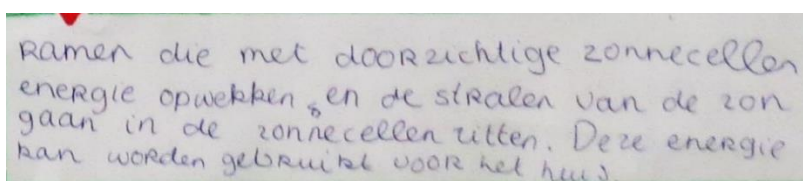 Ramen die met doorzichtige zonnecellen
energie opwekken, en de stralen van de zon
gaan in de zonnecellen zitten. Deze energie
kan worden gebruikt voor het huis.